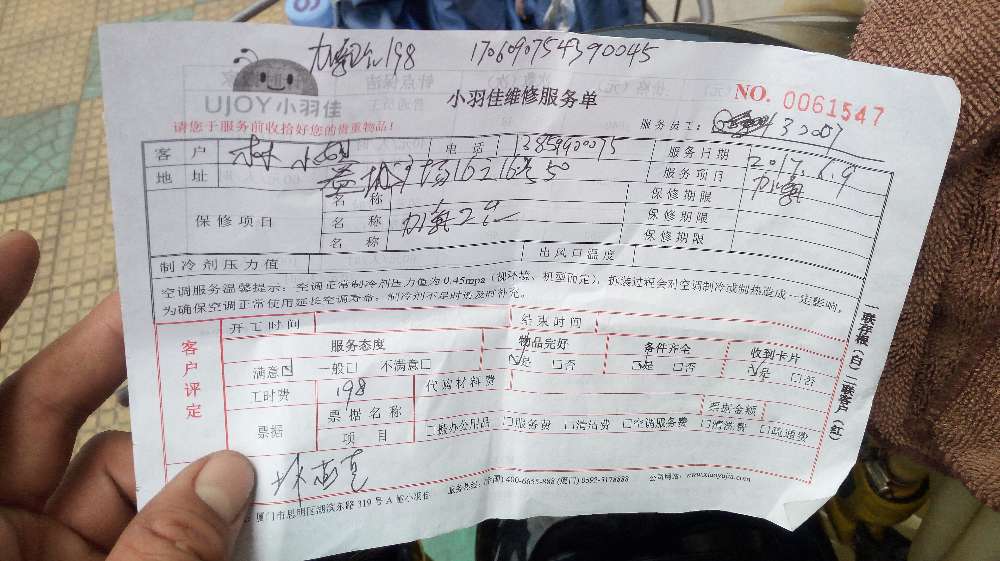 198 170609075439 0045
UJOY小羽佳
小羽佳维修服务单
NO. 0061547
请您于服务前收拾好您的贵重物品!
服务员工: 32007
客户 林小 电话 服务日期 2017.6.9
地址 服务项目 加氟
保修项目 名称 保修期限
名称 加氟 保修期限
名称 保修期限
制冷剂压力值 出风口温度
空调服务温馨提示:空调正常制冷剂压力值为0.45mpa(视环境、机型而定),拆装过程会对空调制冷或制热造成一定影响,
为确保空调正常使用延长空调寿命,制冷剂不足时请及时补充。
一联存根(白)二联客户(红)
客户评定
开工时间 结束时间
服务态度 物品完好 备件齐全 收到卡片
满意☑ 一般□ 不满意□ ☑是 □否 ☑是 □否 ☑是 □否
工时费 198 代购材料费
票据 票据名称 票据金额
项目 □按办公用品 □服务费 □清洁费 □空调服务费 □清洗费 □疏通费
厦门市思明区湖滨东路319号A 小羽佳 服务热线:(全国)400-6655-888 (厦门) 0592-5178888 公司网址:www.xiaoyujia.com